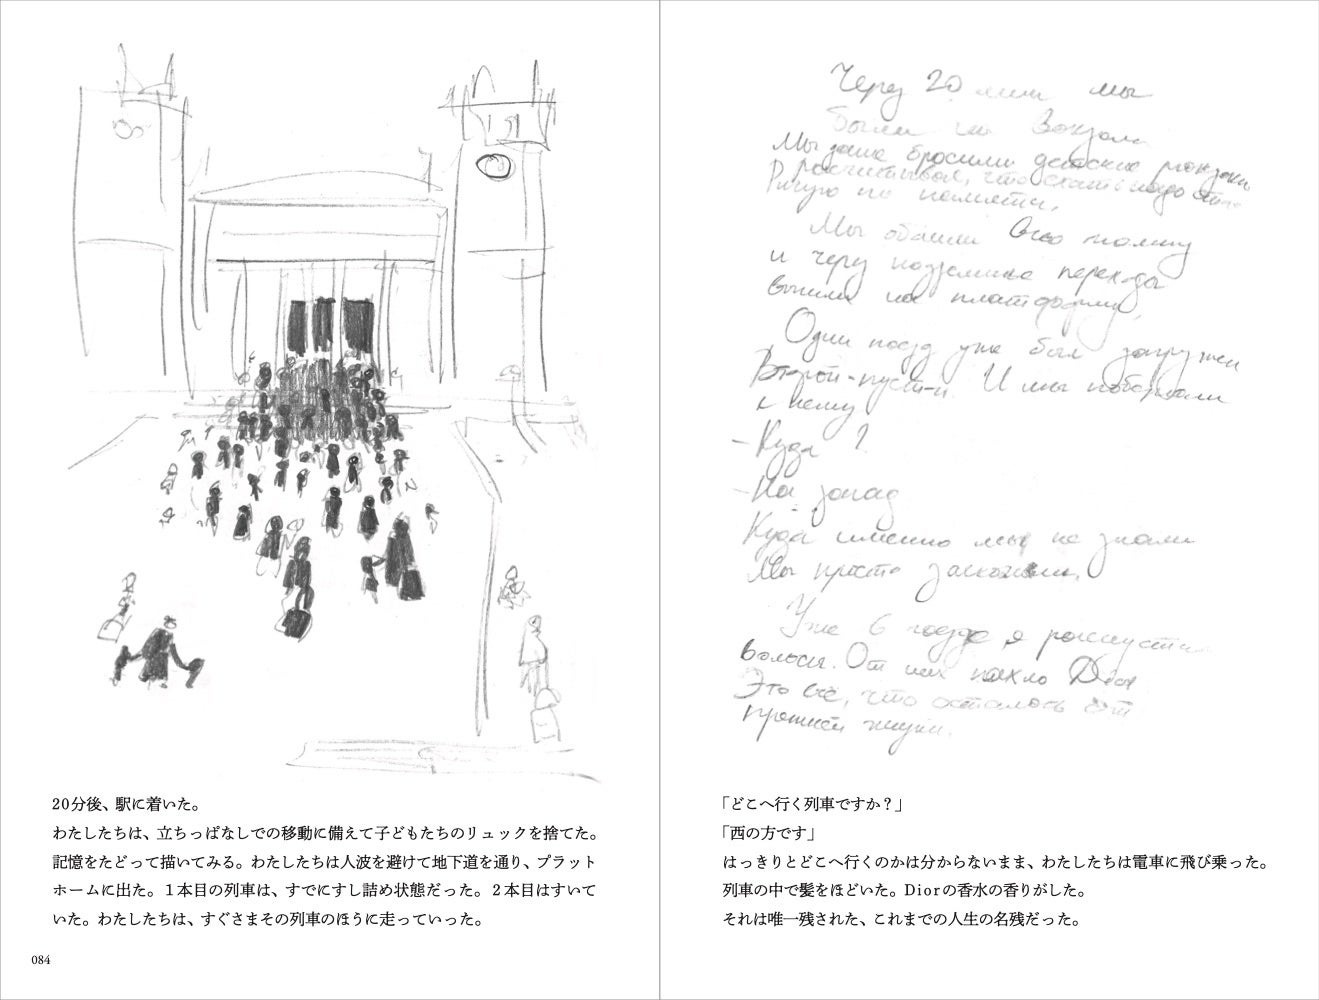 20分後、駅に着いた。
わたしたちは、立ちっぱなしでの移動に備えて子どもたちのリュックを捨てた。
記憶をたどって描いてみる。わたしたちは人波を避けて地下道を通り、プラット
ホームに出た。1本目の列車は、すでにすし詰め状態だった。2本目はすいて
いた。わたしたちは、すぐさまその列車のほうに走っていった。
084
Через 20 мин мы
были на Вокзале
Мы даже бросили детские рюкзаки
Рассчитывая, что ехать надо
Рисую по памяти.
Мы обошли всю толпу
и через подземные переходы
вышли на платформу.
Один поезд уже был загружен
Второй-пустой. И мы побежали
к нему
- Куда?
- На запад
Куда именно мы не знали
Мы просто заскочили.
Уже в поезде я распустила
волосы. От них пахло Dior
Это всё, что осталось от
прошлой жизни.
「どこへ行く列車ですか?」
「西の方です」
はっきりとどこへ行くのかは分からないまま、わたしたちは電車に飛び乗った。
列車の中で髪をほどいた。Diorの香水の香りがした。
それは唯一残された、これまでの人生の名残だった。